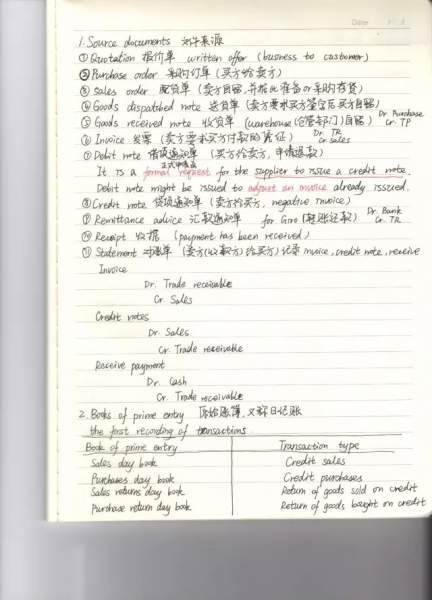 Date
1. Source documents 文件来源
① Quotation 报价单 written offer (business to customer)
② Purchase order 采购订单 (买方给卖方)
③ Sales order 配货单 (卖方自留, 并据此准备or采购存货)
④ Goods dispatched note 送货单 (卖方要求买方签字后买方自留)
⑤ Goods received note 收货单 (warehouse (仓管部门)自留) Dr. Purchase
Cr. TP
⑥ Invoice 发票 (卖方要求买方付款的凭证) Dr. TR
Cr. Sales
⑦ Debit note 借项通知单 (买方给卖方, 申请退款)
正式申请函
It is a formal request for the supplier to issue a credit note.
Debit note might be issued to adjust an invoice already issued.
⑧ Credit note 贷项通知单 (卖方给买方, negative invoice)
⑨ Remittance advice 汇款通知单 for Giro (转账还款) Dr. Bank
Cr. TR
⑩ Receipt 收据 (payment has been received)
⑪ Statement 对账单 (卖方(收款方)给买方) 记录 invoice, credit note, receive
Invoice
Dr. Trade receivable
Cr. Sales
Credit notes
Dr. Sales
Cr. Trade receivable
Receive payment
Dr. Cash
Cr. Trade receivable
2. Books of prime entry 原始账簿, 又称日记账
the first recording of transactions.
Book of prime entry Transaction type
Sales day book Credit sales
Purchases day book Credit purchases
Sales returns day book Return of goods sold on credit
Purchase return day book Return of goods bought on credit